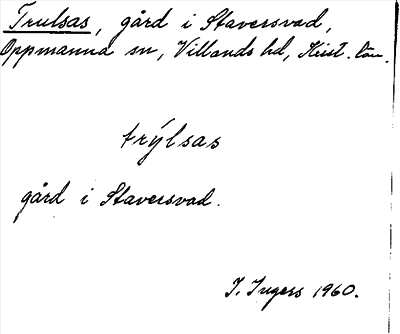 Trulsas, gård i Staversvad,
Oppmanna sn, Villands hd, Krist. län.
trýlsas
gård i Staversvad.
I. Ingers 1960.